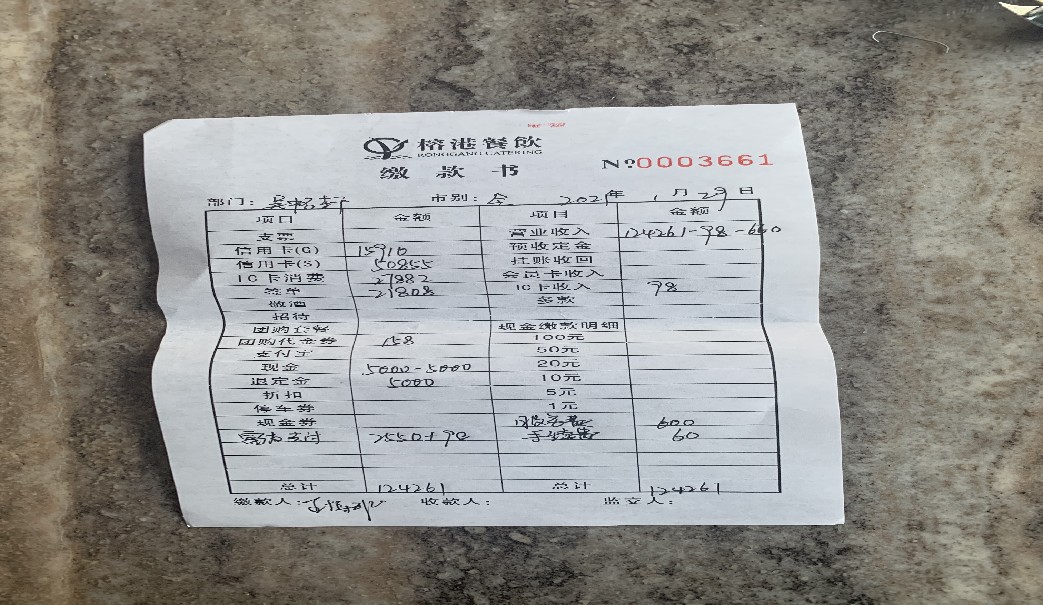 榕港餐飲
RONGGANG CATERING
缴款书
№0003661
部门: 市别: 2021年 1月29日
项目 金额 项目 金额
支票 营业收入 124261-98-660
信用卡(G) 15910 预收定金
信用卡(S) 50855 挂账收回
IC卡消费 27882 会员卡收入
签单 21808 IC卡收入 98
多款
招待
团购套餐 现金缴款明细
团购代金券 158 100元
支付宝 50元
现金 5000-5000 20元
退定金 5000 10元
折扣 5元
停车券 1元
现金券 服务费 600
支付 2550+98 手续费 60
总计 124261 总计 124261
缴款人: 收款人: 监交人: